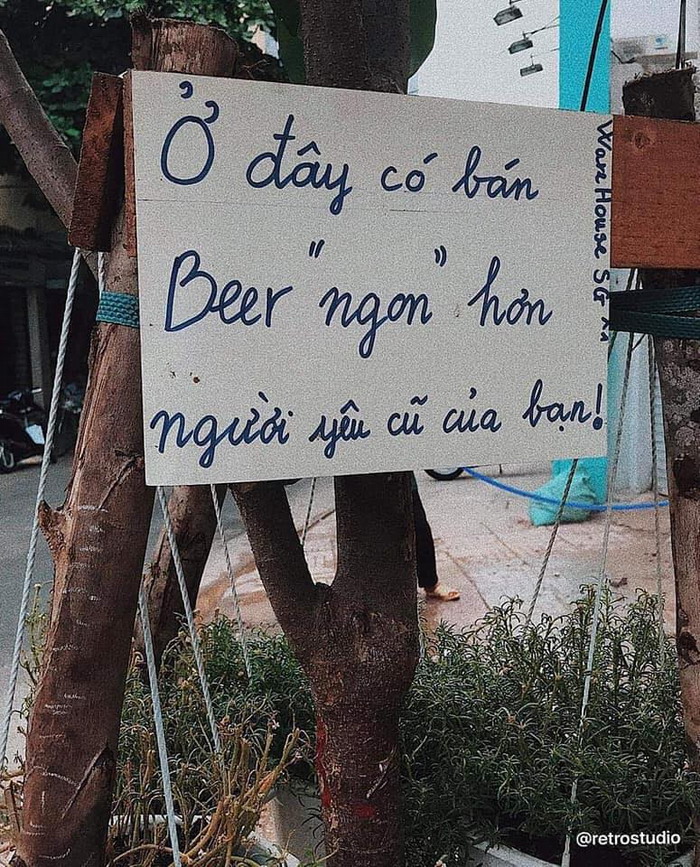 Ở đây có bán
Beer "ngon" hơn
người yêu cũ của bạn!
Ware House SG
@retrostudio